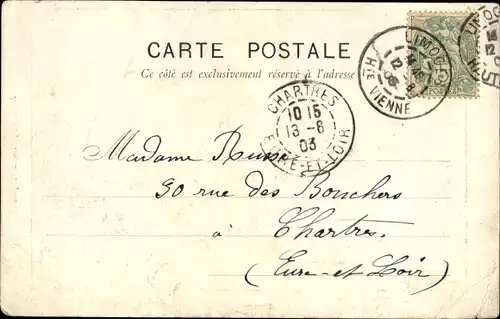 CARTE POSTALE
Ce côté est exclusivement réservé à l'adresse
LIMOGES
Hte VIENNE
CHARTRES
10 15
13-8
03
EURE-ET-LOIR
Madame
90 rue des Bouchers
à
Chartres.
(Eure-et-Loir)